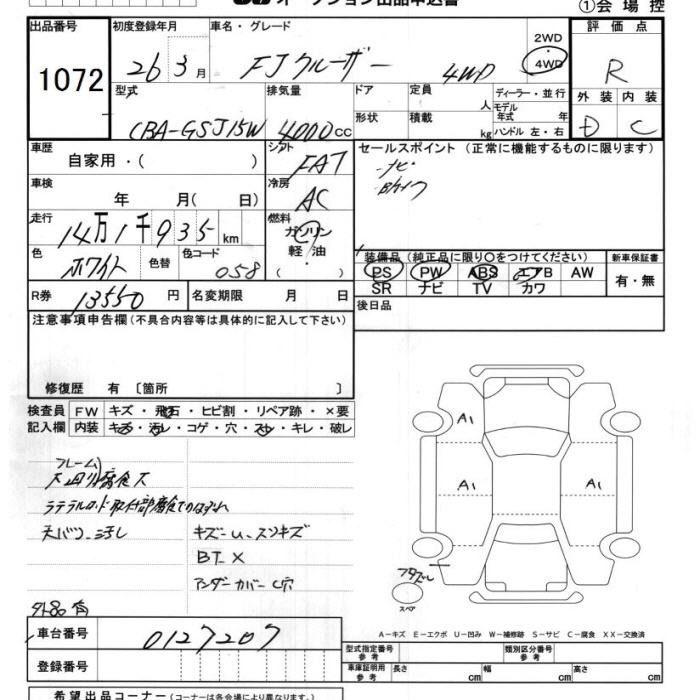 オークション出品申込書
①会場控
出品番号 初度登録年月 車名・グレード 評価点
1072 26 3月 FJクルーザー 4WD 2WD 4WD R
型式 排気量 ドア 定員 ディーラー・並行 外装 内装
CBA-GSJ15W 4000cc 形状 積載 人 kg モデル年式 年 ハンドル 左・右 D C
車歴 シフト セールスポイント(正常に機能するものに限ります)
自家用・( ) FAT ナビ
車検 冷房 Bカメラ
年 月( 日) AC
走行 燃料
14万1千935km ガソリン
軽油
( )
色 色替 色コード 装備品(純正品に限り○をつけてください) 新車保証書
ホワイト 058 PS PW ABS エアB AW 有・無
SR ナビ TV カワ
R券 13550円 名変期限 月 日 後日品
注意事項申告欄(不具合内容等は具体的に記入して下さい)
修復歴 有 〔箇所 〕
検査員 FW キズ・飛石・ヒビ割・リペア跡・×要
記入欄 内装 キズ・汚レ・コゲ・穴・スレ・キレ・破レ
A1
A1 A1
フレーム
ラテラルロッド取付部腐食てのはずれ
天バリ汚し キズーU、スリキズ
BT-X
アンダーカバーC穴
スペア
外品有
A-キズ E-エクボ U-凹み W-補修跡 S-サビ C-腐食 XX-交換済
車台番号 0127207
型式指定番号 参考 類別区分番号 参考
登録番号 車庫証明用 参考 長さ cm 幅 cm 高さ cm
希望出品コーナー(コーナーは各会場により異なります)